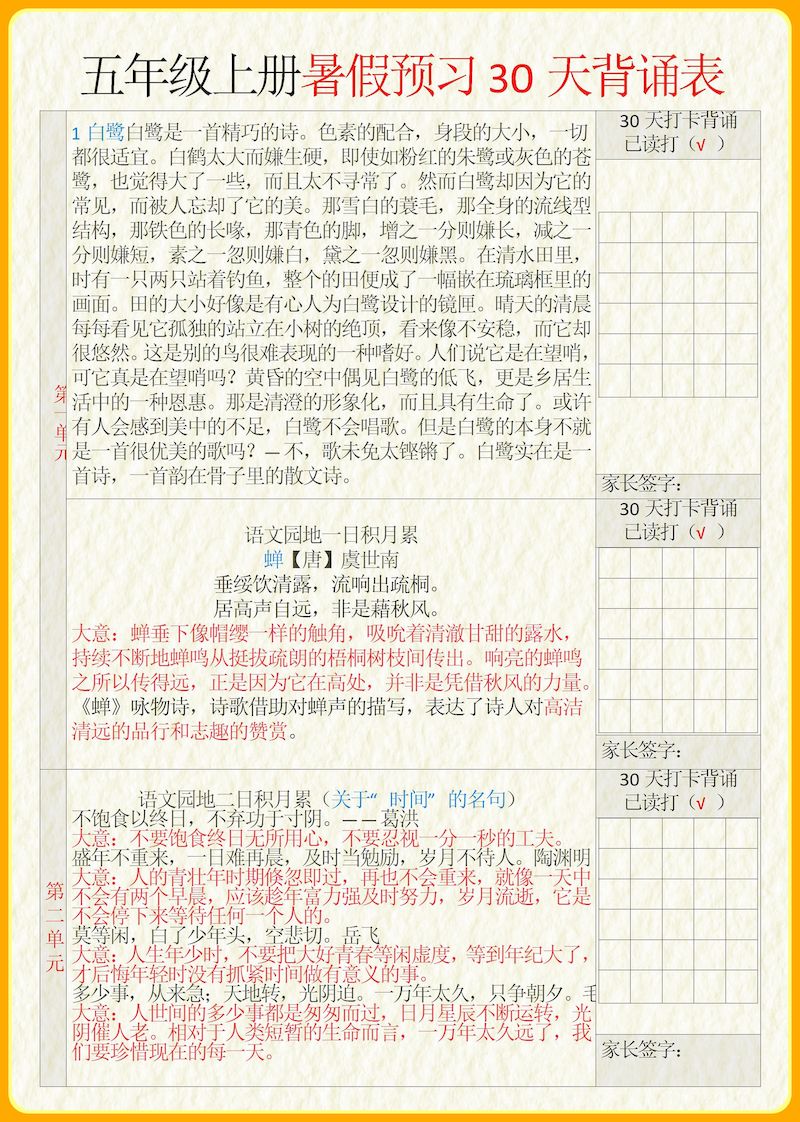 五年级上册暑假预习30天背诵表
第一单元
1 白鹭白鹭是一首精巧的诗。色素的配合，身段的大小，一切
都很适宜。白鹤太大而嫌生硬，即使如粉红的朱鹭或灰色的苍
鹭，也觉得大了一些，而且太不寻常了。然而白鹭却因为它的
常见，而被人忘却了它的美。那雪白的蓑毛，那全身的流线型
结构，那铁色的长喙，那青色的脚，增之一分则嫌长，减之一
分则嫌短，素之一忽则嫌白，黛之一忽则嫌黑。在清水田里，
时有一只两只站着钓鱼，整个的田便成了一幅嵌在琉璃框里的
画面。田的大小好像是有心人为白鹭设计的镜匣。晴天的清晨
每每看见它孤独的站立在小树的绝顶，看来像不安稳，而它却
很悠然。这是别的鸟很难表现的一种嗜好。人们说它是在望哨，
可它真是在望哨吗？黄昏的空中偶见白鹭的低飞，更是乡居生
活中的一种恩惠。那是清澄的形象化，而且具有生命了。或许
有人会感到美中的不足，白鹭不会唱歌。但是白鹭的本身不就
是一首很优美的歌吗？—不，歌未免太铿锵了。白鹭实在是一
首诗，一首韵在骨子里的散文诗。
30 天打卡背诵
已读打（√ ）
家长签字：
语文园地一日积月累
蝉【唐】虞世南
垂绥饮清露，流响出疏桐。
居高声自远，非是藉秋风。
大意：蝉垂下像帽缨一样的触角，吸吮着清澈甘甜的露水，
持续不断地蝉鸣从挺拔疏朗的梧桐树枝间传出。响亮的蝉鸣
之所以传得远，正是因为它在高处，并非是凭借秋风的力量。
《蝉》咏物诗，诗歌借助对蝉声的描写，表达了诗人对高洁
清远的品行和志趣的赞赏。
30 天打卡背诵
已读打（√ ）
家长签字：
第二单元
语文园地二日积月累（关于“ 时间” 的名句）
不饱食以终日，不弃功于寸阴。——葛洪
大意：不要饱食终日无所用心，不要忍视一分一秒的工夫。
盛年不重来，一日难再晨，及时当勉励，岁月不待人。陶渊明
大意：人的青壮年时期倏忽即过，再也不会重来，就像一天中
不会有两个早晨，应该趁年富力强及时努力，岁月流逝，它是
不会停下来等待任何一个人的。
莫等闲，白了少年头，空悲切。岳飞
大意：人生年少时，不要把大好青春等闲虚度，等到年纪大了，
才后悔年轻时没有抓紧时间做有意义的事。
多少事，从来急；天地转，光阴迫。一万年太久，只争朝夕。毛
大意：人世间的多少事都是匆匆而过，日月星辰不断运转，光
阴催人老。相对于人类短暂的生命而言，一万年太久远了，我
们要珍惜现在的每一天。
30 天打卡背诵
已读打（√ ）
家长签字：